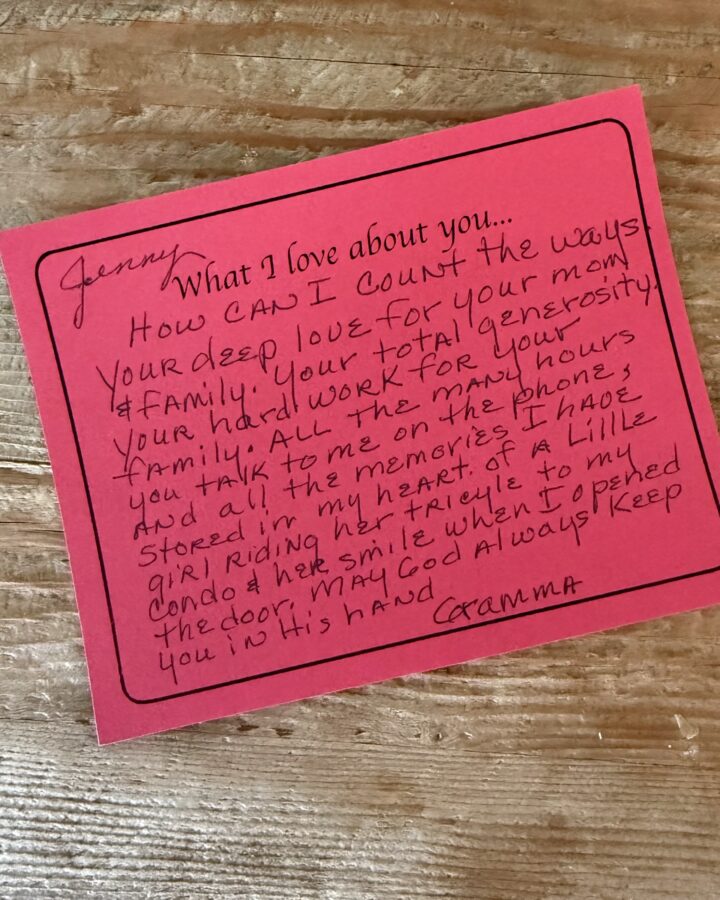 Jenny
What I love about you...
How can I count the ways.
Your deep love for your mom
& family. Your total generosity.
Your hard work for your
family. All the many hours
you talk to me on the phone,
And all the memories I have
stored in my heart. of a Little
girl riding her tricyle to my
condo & her smile when I opened
the door. May God always keep
you in His hand
Gramma